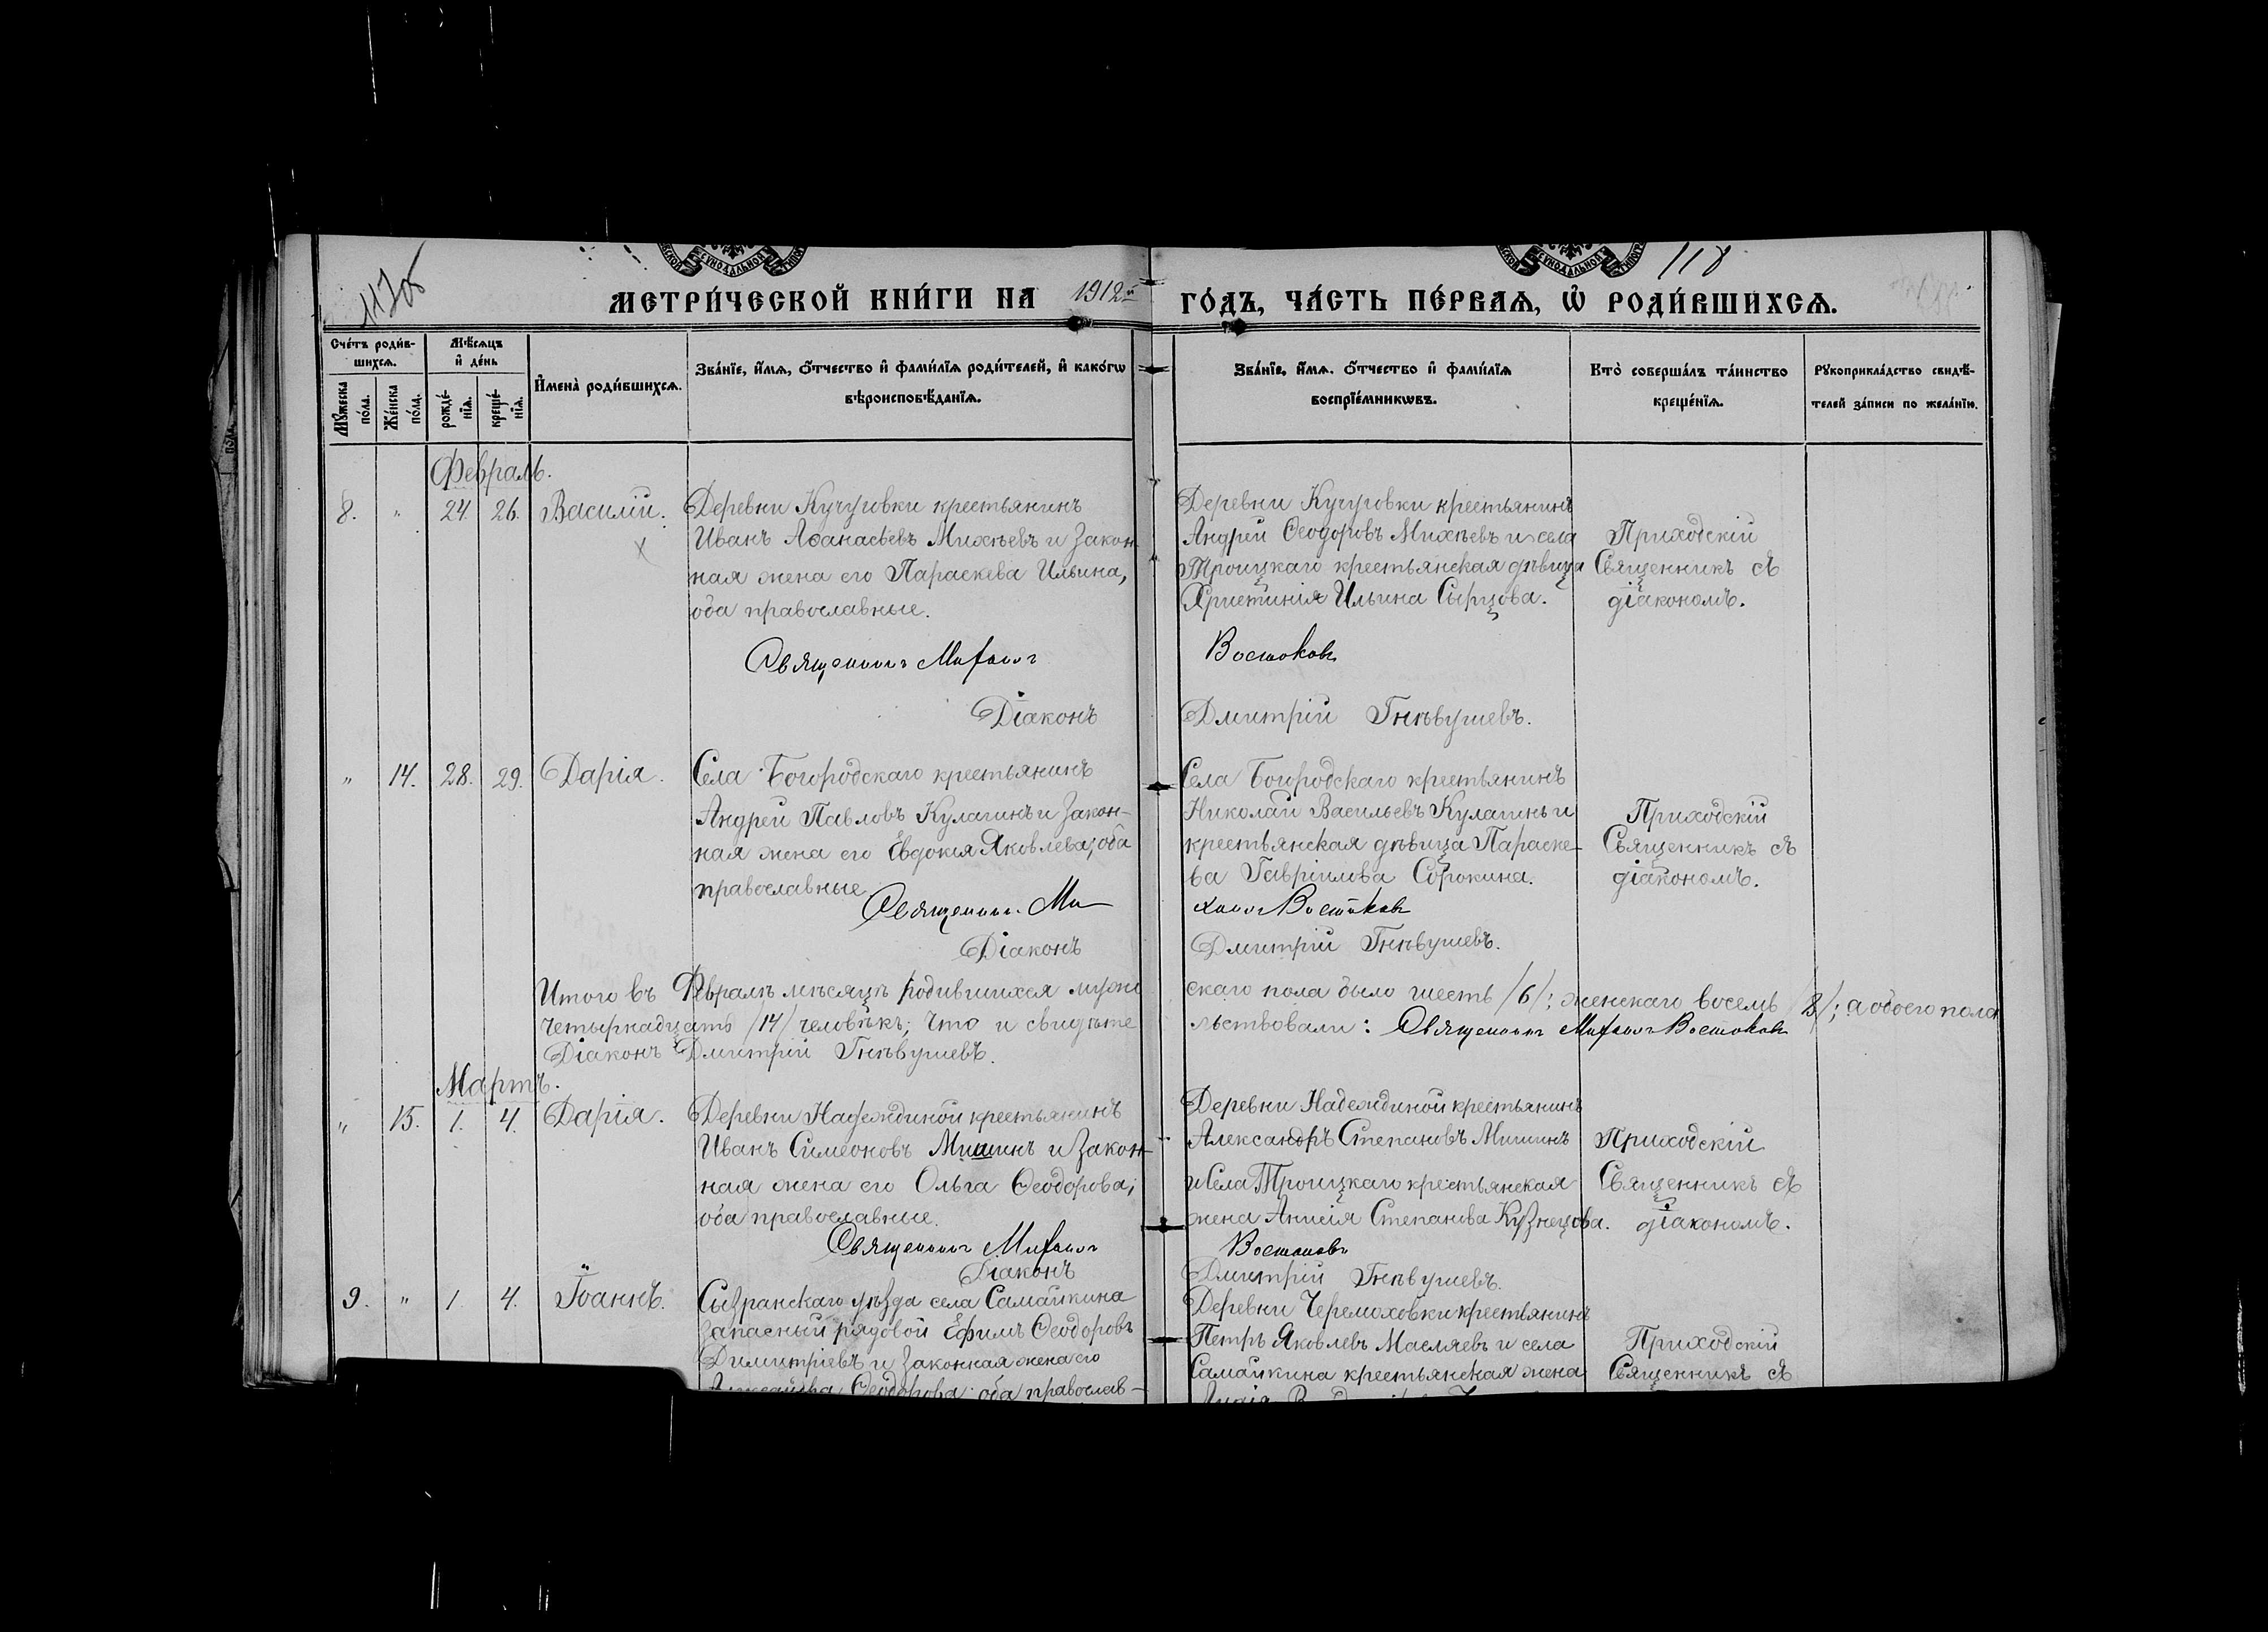 118
МЕТРИ́ЧЕСКОЙ КНИ́ГИ НА 1912й ГО́ДЪ, ЧА́СТЬ ПЕ́РВАѦ, Ѡ РОДИ́ВШИХСѦ.
Сче́тъ роди́в-
шихсѧ.
Мꙋ́жеска по́ла.
Же́нска по́ла.
Мѣ́сѧцъ
и де́нь
рожде́-
нїѧ.
креще́-
нїѧ.
И҆мена̀ роди́вшихсѧ.
Зва́нїе, и҆́мѧ, ѻ҆́тчество и҆ фами́лїѧ роди́телей, и҆ како́гѡ
вѣроисповѣ́данїѧ.
Зва́нїе, и҆́мѧ. ѻ҆́тчество и҆ фами́лїѧ
воспрїе́мникѡвъ.
Кто̀ соверша́лъ та́инство
креще́нїѧ.
Рꙋкоприкла́дство свидѣ́-
телей за́писи по жела́нїю.
Февраль.
8. " 24. 26. Василій.
Деревни Кучуговки крестьянинъ
Иванъ Аѳанасьевъ Михѣевъ и закон-
ная жена его Параскева Ильина,
оба православные.
Деревни Кучуговки крестьянинъ
Андрей Ѳеодоровъ Михѣевъ и села
Троицкаго крестьянская дѣвица
Христинія Ильина Сырцова.
Приходскій
Священникъ съ
діакономъ.
Священникъ Михаилъ Востоковъ
Діаконъ Дмитрій Гнѣвушевъ.
" 14. 28. 29. Дарія.
Села Богородскаго крестьянинъ
Андрей Павловъ Кулагинъ и закон-
ная жена его Евдокія Яковлева, оба
православные
Села Богородскаго крестьянинъ
Николай Васильевъ Кулагинъ и
крестьянская дѣвица Параске-
ва Гавріилова Сорокина.
Приходскій
Священникъ съ
діакономъ.
Священникъ Михаилъ Востоковъ
Діаконъ Дмитрій Гнѣвушевъ.
Итого въ Февралѣ мѣсяцѣ родившихся мужескаго пола было шесть /6/; женскаго восемь /8/; а обоего пола
четырнадцать /14/ человѣкъ; что и свидѣтельствовали: Священникъ Михаилъ Востоковъ
Діаконъ Дмитрій Гнѣвушевъ.
Мартъ.
" 15. 1. 4. Дарія.
Деревни Надеждиной крестьянинъ
Иванъ Симеоновъ Мишинъ и закон-
ная жена его Ольга Ѳеодорова;
оба православные.
Деревни Надеждиной крестьянинъ
Александръ Степановъ Мишинъ
и Села Троицкаго крестьянская
жена Анисія Степанова Кузнецова.
Приходскій
Священникъ съ
діакономъ.
Священникъ Михаилъ Востоковъ
Діаконъ Дмитрій Гнѣвушевъ.
9. " 1. 4. Іоаннъ.
Сызранскаго уѣзда села Самайкина
запасный рядовой Ефимъ Ѳеодоровъ
Димитріевъ и законная жена его
Ѳеодорова; оба православ-
Деревни Черемоховки крестьянинъ
Петръ Яковлевъ Масляевъ и села
Самайкина крестьянская жена
Приходскій
Священникъ съ